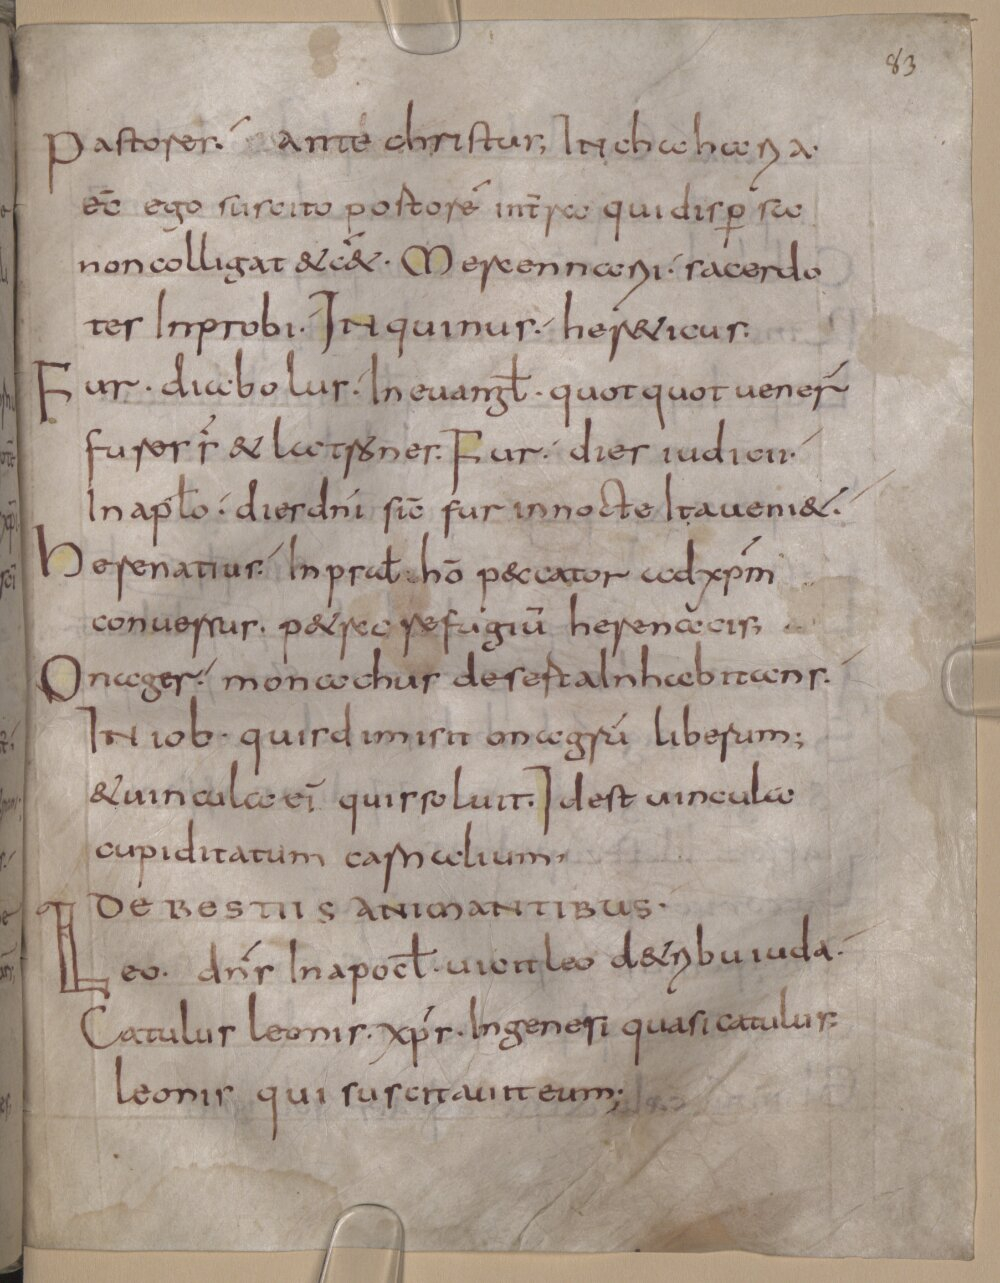 83
Pastores. ante christus; IN chaharia.
ec̄ ego suscito pastorē int̄ra qui disꝑsa
non colligat &c̄&. Mercennarii. sacerdo
tes Inprobi. IN quinus. her&icus.
Fur. diabolus. In euangl̄. quot quot uener̄
fures s̄ & latrones. Fur. dies iudicii.
In apl̄o. dies dn̄i sic̄ fur in nocte Ita ueni&.
herenatius. In psal̄. hō peccator ad xp̄m
conuersus. p&ra refugiū herenacis;
Onager. monachus deserta Inhabitans.
IN iob. quis dimisit onagrū liberum;
& uincula eī quis soluit. Id est uincula
cupiditatum carnalium,
DE BESTIIS ANIMANTIBUS.
Leo. dn̄s In apocl̄. uicit leo de tribu iuda.
Catulus leonis. xp̄s. In genesi quasi catulus
leonis qui suscitauit eum;